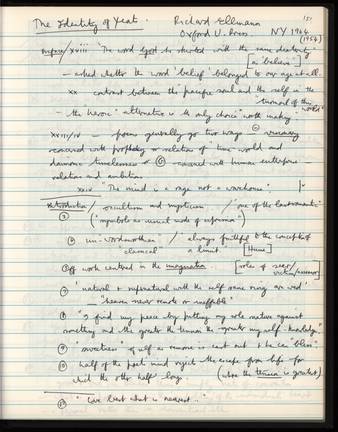 The Identity of Yeats. Richard Ellmann 151
Oxford U. Press. NY 1964
(1954)
Preface/xviii "The word is skirted with the same dexterity"
[a 'believer']
— asked whether the word 'belief' belonged to our age at all.
xx contrast between the passive soul and the self in the "turmoil of this world"
— the heroic "alternative is the only choice" worth making.
xxiii/iv — poems generally go two ways
concerned with prophecy or relation of time-world and
daimonic timelessness or concerned with human enterprise —
relations and ambitions
xxiv "The mind is a rage not a warehouse."
Introduction / occultism and mysticism / "one of the last romantics"
② ("symbolic as usual mode of expression")
un-wordsworthian / 'always faithful to the conception of
"classical" a limit. [Hume]
work centred in the imagination [roles of seer/
victim/assessor]
⑦ 'natural + supernatural with the self same ring are wed'
— 'heaven never remote or ineffable'
⑧ "I find my peace by putting my sole nature against
something and the greater the tension the greater my self-knowledge."
⑨ "sweetness" of self as remorse is cast out + he is 'blest'
⑩ half of the poet's mind rejects the escape from life for
which the other half longs. (when the tension is greatest)
"Live best what is nearest.."